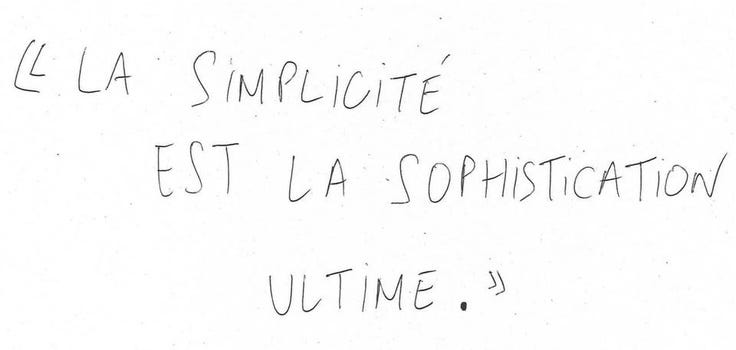 « LA SiMPLiCiTÉ
EST LA SOPHiSTiCATiON
ULTiME. »